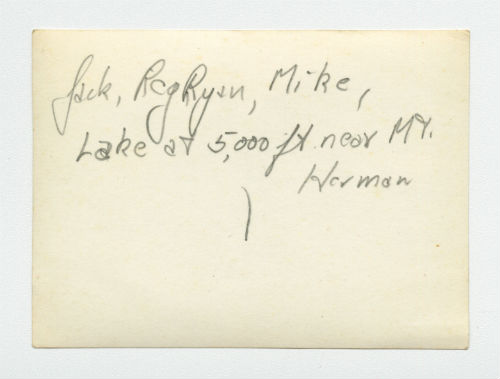 Jack, Reg Ryan, Mike,
Lake at 5,000 ft near Mt.
Herman
)